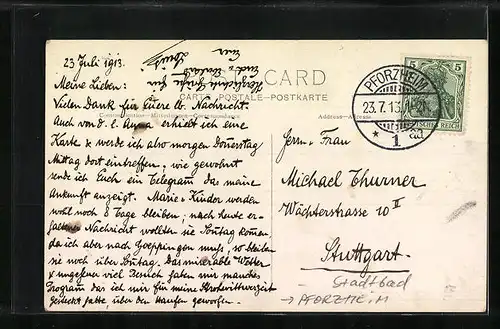 23 Juli 1913.
Meine Lieben:
Vielen Dank für Euere lb. Nachricht.
Auch von d. l. Anna erhielt ich eine
Karte & werde ich also morgen Donnerstag
Mittag dort eintreffen, wie gewohnt
sende ich Euch ein Telegram das meine
Ankunft anzeigt. Marie & Kinder werden
wohl noch 8 Tage bleiben; nach heute er-
haltener Nachricht wollten sie Sontag komen,
da ich aber nach Goeppingen muss, so bleiben
sie noch über Sontag. Das miserable Wetter
& ungeheuer viel Besuch haben mir manches
Program das ich mir für meine Strohwittwerzeit
gesteckt hatte, über den Haufen geworfen.
Herzlichste Grüße für
Euch &
Euer
POST CARD
CARTE POSTALE-POSTKARTE
Correspondence-Mitteilungen-Correspondance
Address-Adresse
PFORZHEIM
23.7.13.
* 1
5 5
DEUTSCHES REICH
Herrn & Frau
Michael Thurner
Wächterstrasse 10 II
Stuttgart.
Stadtbad
→ PFORZHEIM